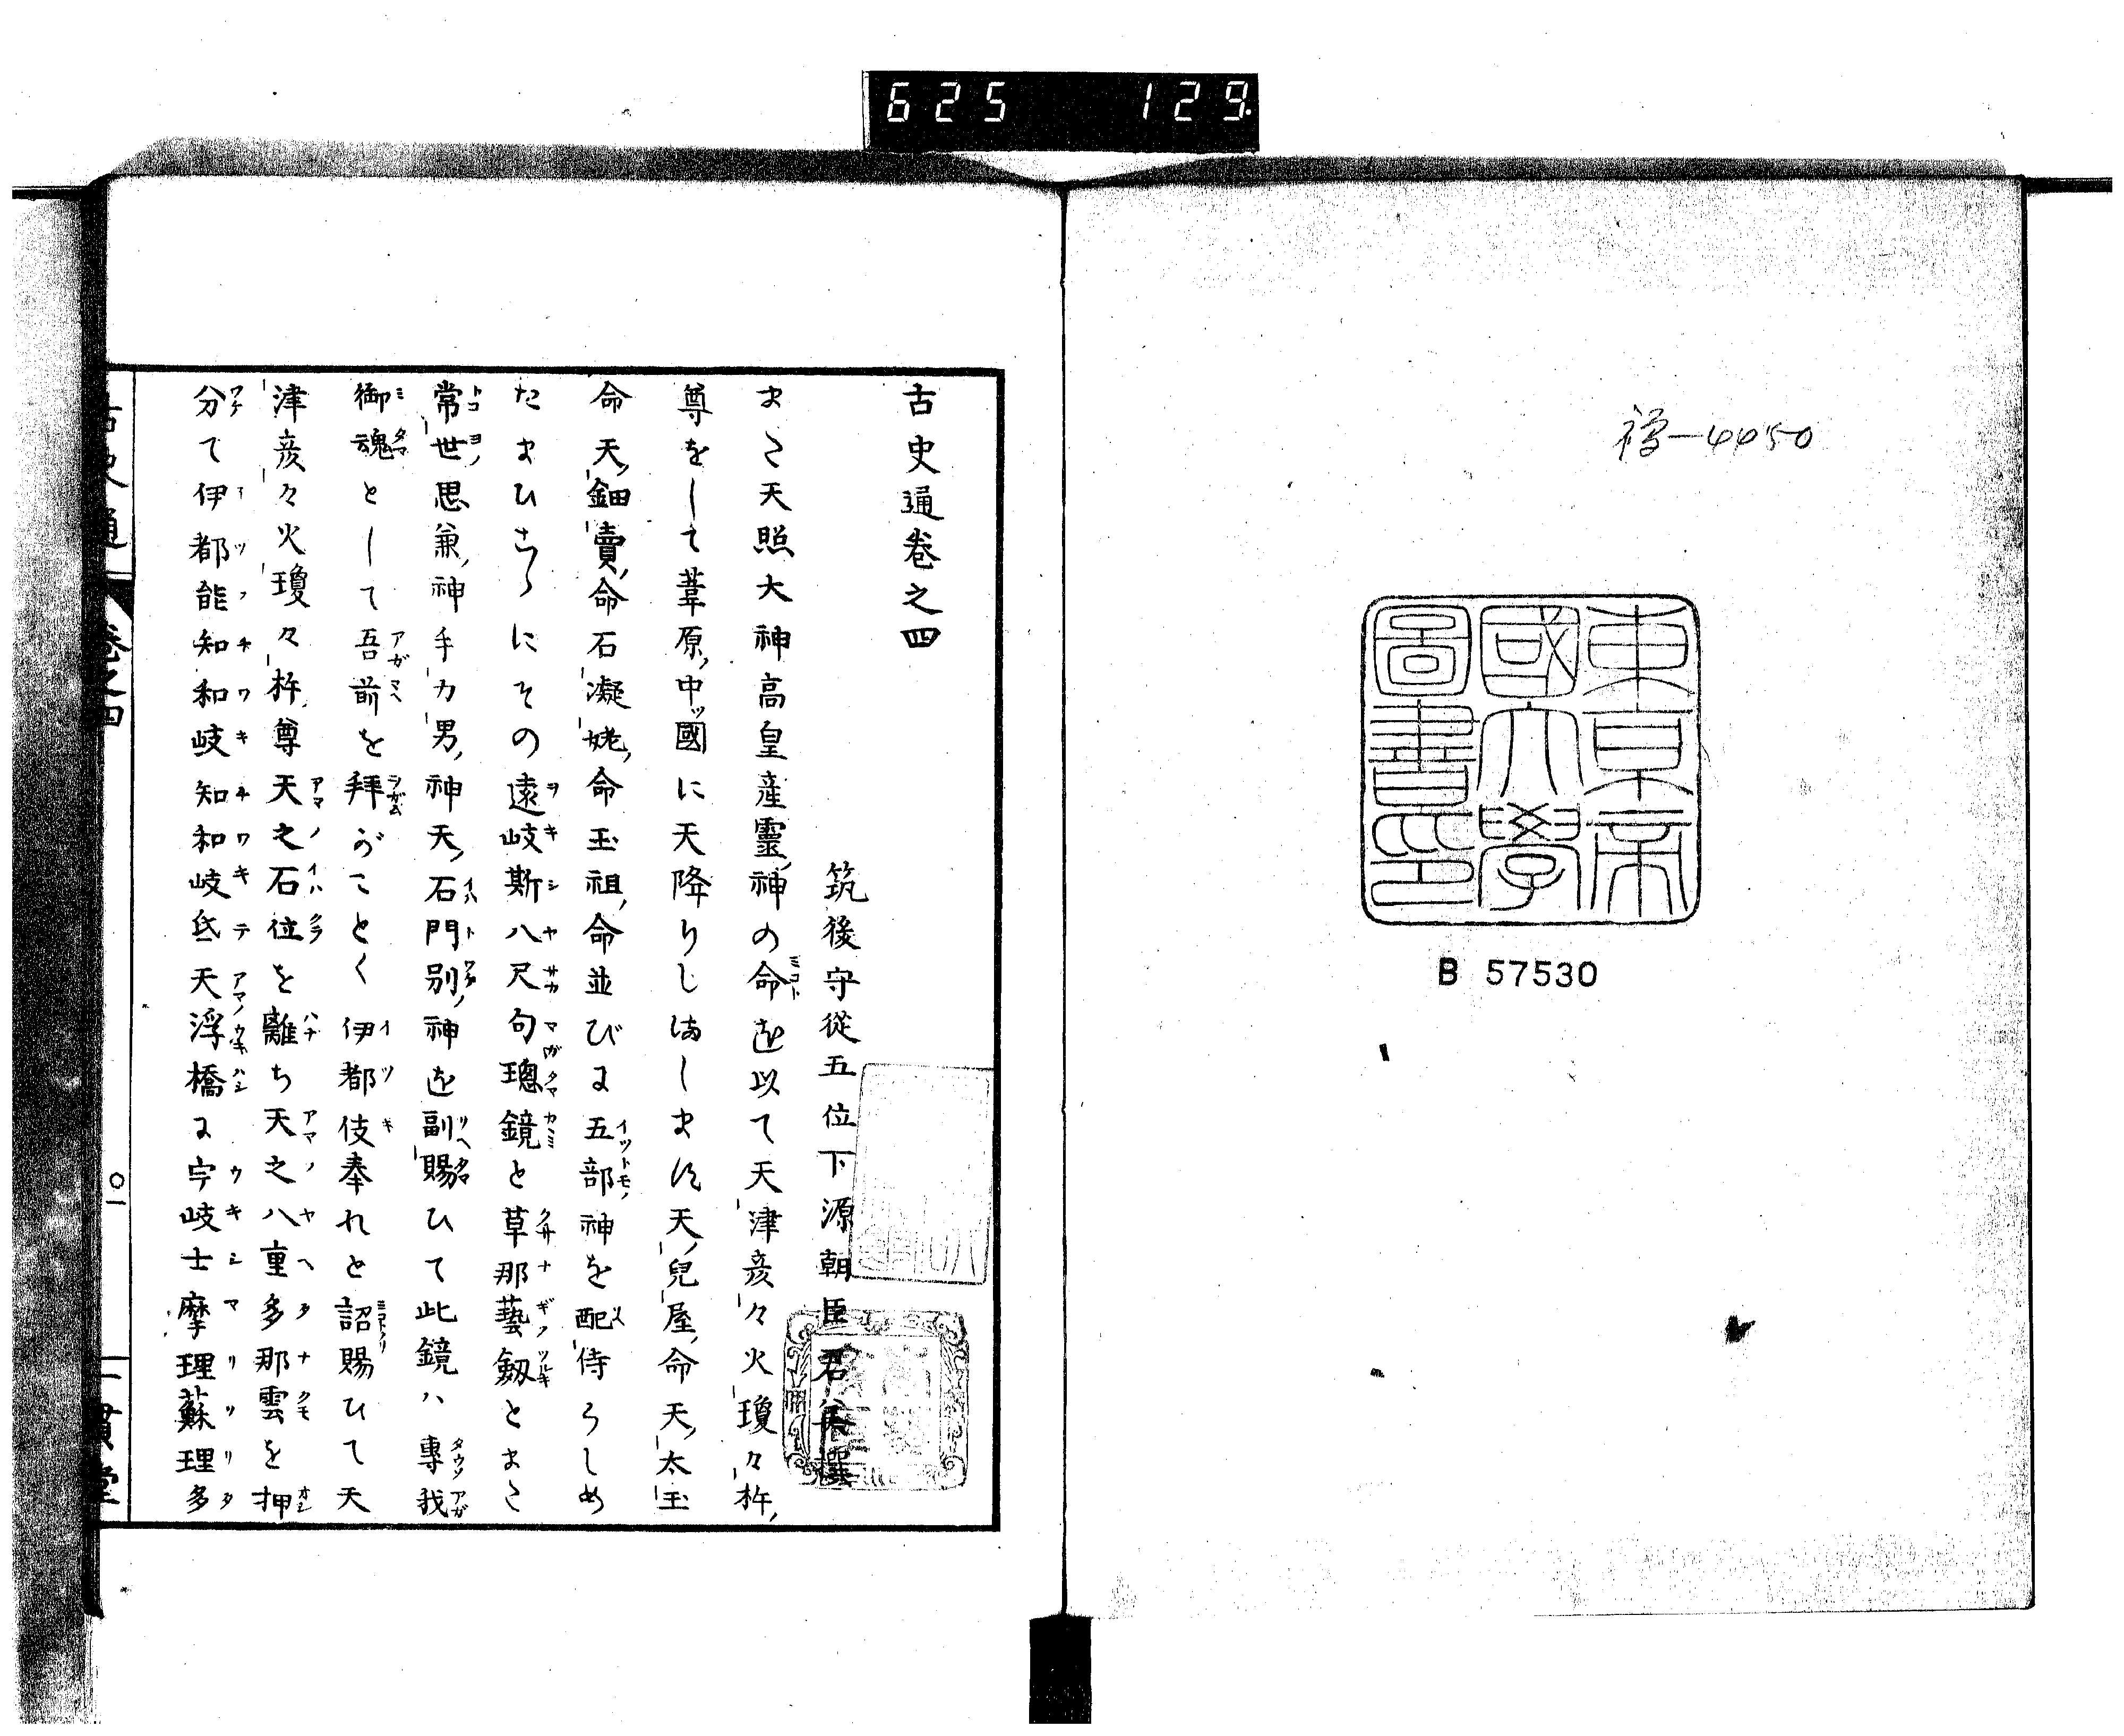 625 129.
禅-4450
東京帝
國大學
圖書印
B 57530
古史通巻之四
筑後守従五位下源朝臣君美撰
まさ天照大神高皇産靈神の命を以て天津彦々火瓊々杵
尊をして葦原中ッ國に天降りしまします天兒屋命天太玉
命天鈿賣命石凝姥命玉祖命並びに五部神を配侍らしめ
たまひさらにその遠岐斯八尺句璁鏡と草那藝劔とまた
常世思兼神手力男神天石門別神を副賜ひて此鏡ハ專我
御魂として吾前を拜がことく伊都伎奉れと詔賜ひて天
津彦々火瓊々杵尊天之石位を離ち天之八重多那雲を押
分て伊都能知和岐知和岐氐天浮橋に宇岐士摩理蘇理多
古史通
巻之四
〇一
一貫堂